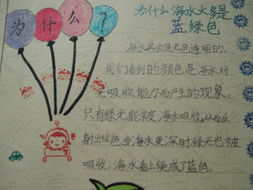 为什么?
为什么海水大多是
蓝绿色
海水其实是无色透明的。
我们看到的颜色是海水对
光吸收能力而产生的现象。
只有绿光能被海水吸收,从而反
射出绿色;当海水更深时,绿光也被
吸收,海水看上便成了蓝色。